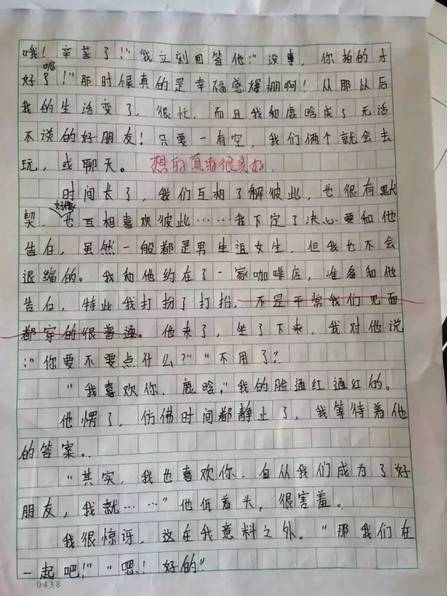 哦！辛苦了！”我立刻回答他：“没事，你拍的才
好呢！”那时候真的是幸福感爆棚啊！从那从后
我的生活变了，很忙，而且我和鹿晗成了无话
不谈的好朋友！只要一有空，我们俩个就会去
玩，或聊天。想的真的很美打
时间长了，我们互相了解彼此，也很有默
契，好像也互相喜欢彼此……我下定了决心要和他
告白，虽然一般都是男生追女生，但我也不会
退缩的。我和他约在了一家咖啡店，准备和他
告白，特此我打扮了打扮，不是平常我们见面
都穿的很普通。他来了，坐了下来，我对他说
：“你要不要点什么？”“不用了？
“我喜欢你，鹿晗，”我的脸通红通红的。
他愣了，仿佛时间都静止了，我等待着他
的答案。
“其实，我也喜欢你，自从我们成为了好
朋友，我就……”他低着头，很害羞。
我很惊讶，这在我意料之外。“那我们在
一起吧！”“嗯！好的”
0438